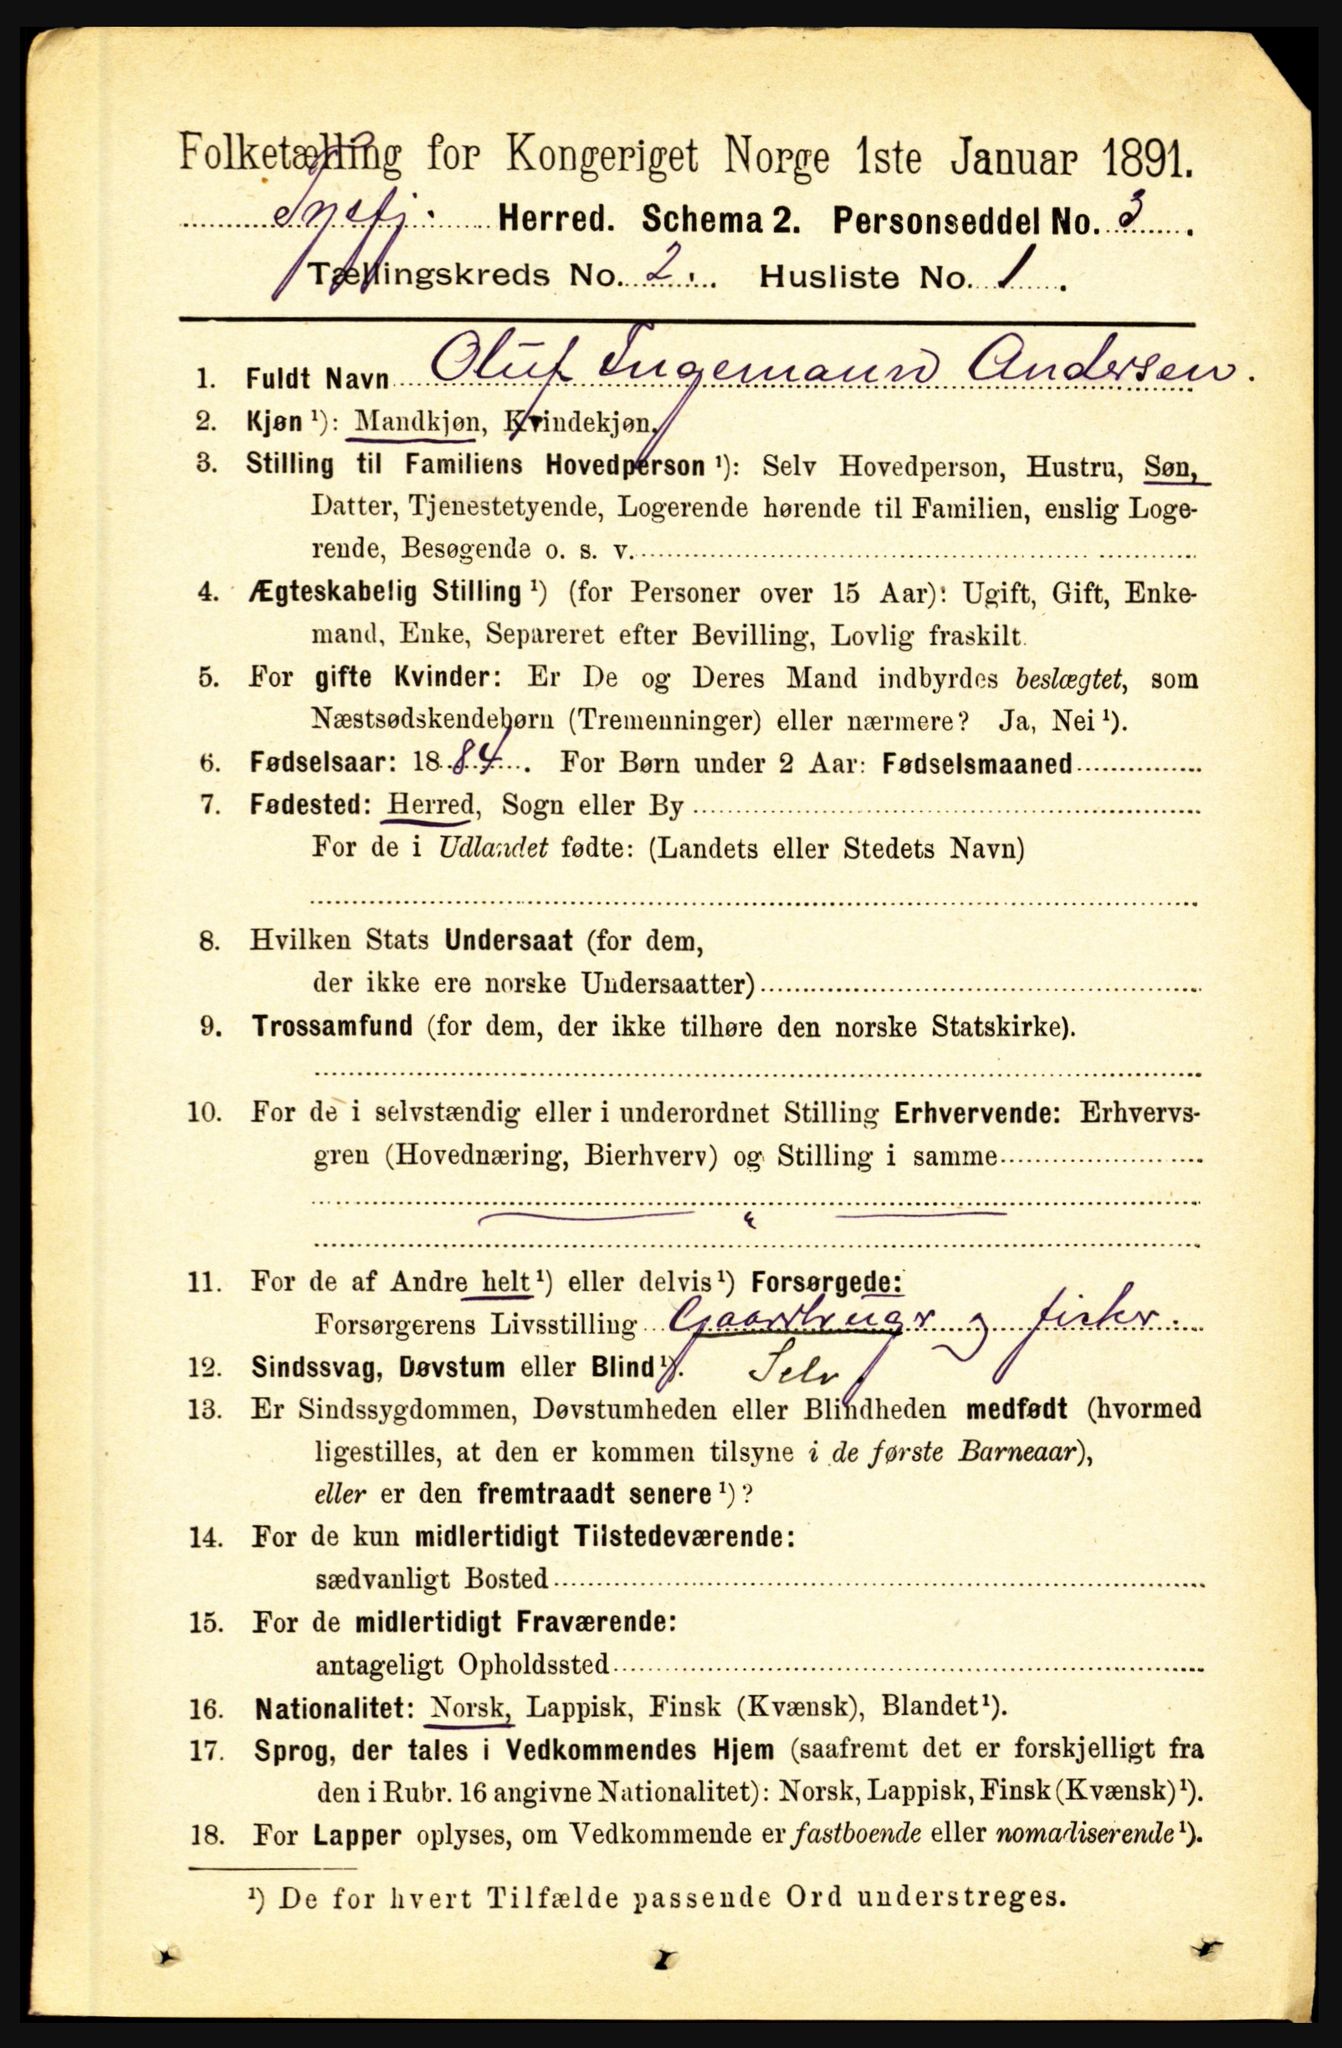 Folketælling for Kongeriget Norge 1ste Januar 1891.
Herred. Schema 2. Personseddel No. 3.
Tællingskreds No. 2. Husliste No. 1.
1. Fuldt Navn Oluf Ingemann Andersen.
2. Kjøn ¹): Mandkjøn, Kvindekjøn.
3. Stilling til Familiens Hovedperson ¹): Selv Hovedperson, Hustru, Søn,
Datter, Tjenestetyende, Logerende hørende til Familien, enslig Loge-
rende, Besøgende o. s. v.
4. Ægteskabelig Stilling ¹) (for Personer over 15 Aar): Ugift, Gift, Enke-
mand, Enke, Separeret efter Bevilling, Lovlig fraskilt.
5. For gifte Kvinder: Er De og Deres Mand indbyrdes beslægtet, som
Næstsødskendebørn (Tremenninger) eller nærmere? Ja, Nei ¹).
6. Fødselsaar: 1884. For Børn under 2 Aar: Fødselsmaaned
7. Fødested: Herred, Sogn eller By
For de i Udlandet fødte: (Landets eller Stedets Navn)
8. Hvilken Stats Undersaat (for dem,
der ikke ere norske Undersaatter)
9. Trossamfund (for dem, der ikke tilhøre den norske Statskirke).
10. For de i selvstændig eller i underordnet Stilling Erhvervende: Erhvervs-
gren (Hovednæring, Bierhverv) og Stilling i samme
11. For de af Andre helt ¹) eller delvis ¹) Forsørgede:
Forsørgerens Livsstilling Gaardbruger og fisker.
12. Sindssvag, Døvstum eller Blind ¹). Selv.
13. Er Sindssygdommen, Døvstumheden eller Blindheden medfødt (hvormed
ligestilles, at den er kommen tilsyne i de første Barneaar),
eller er den fremtraadt senere ¹)?
14. For de kun midlertidigt Tilstedeværende:
sædvanligt Bosted
15. For de midlertidigt Fraværende:
antageligt Opholdssted
16. Nationalitet: Norsk, Lappisk, Finsk (Kvænsk), Blandet ¹).
17. Sprog, der tales i Vedkommendes Hjem (saafremt det er forskjelligt fra
den i Rubr. 16 angivne Nationalitet): Norsk, Lappisk, Finsk (Kvænsk) ¹).
18. For Lapper oplyses, om Vedkommende er fastboende eller nomadiserende ¹).
¹) De for hvert Tilfælde passende Ord understreges.